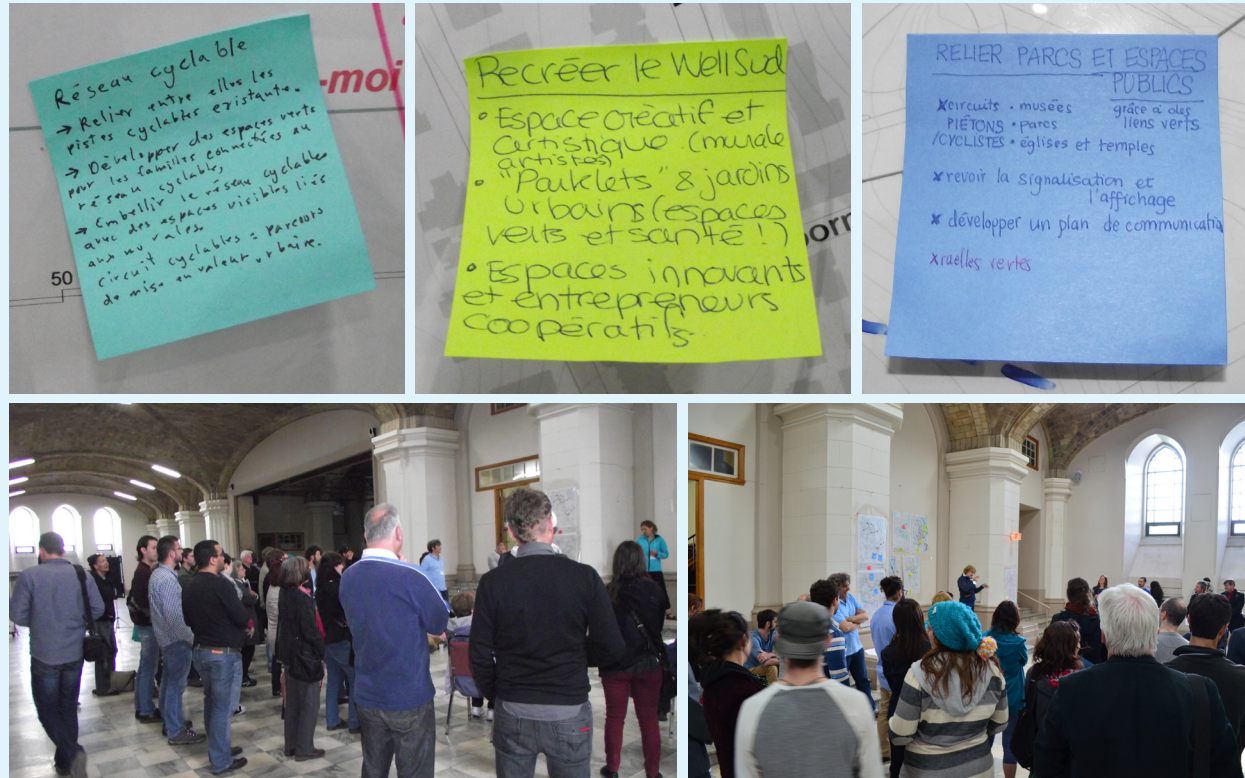 Réseau cyclable
→ Relier entre elles les
pistes cyclables existante.
→ Développer des espaces verts
pour les familles connectées au
réseau cyclable,
→ Embellir le réseau cyclable
avec des espaces visibles liés
aux murales.
circuit cyclables = parcours
de mise en valeur urbaine.
-moi
50
Recréer le WellSud
• Espace créatif et
artistique (murale
artistes)
• "Parklets" & jardins
urbains (espaces
verts et santé !)
• Espaces innovants
et entrepreneurs
coopératifs.
orn
RELIER PARCS ET ESPACES
PUBLICS
grâce à des
liens verts
x circuits • musées
PIÉTONS • parcs
/CYCLISTES • églises et temples
x revoir la signalisation et
l'affichage
x développer un plan de communicatio
x ruelles vertes